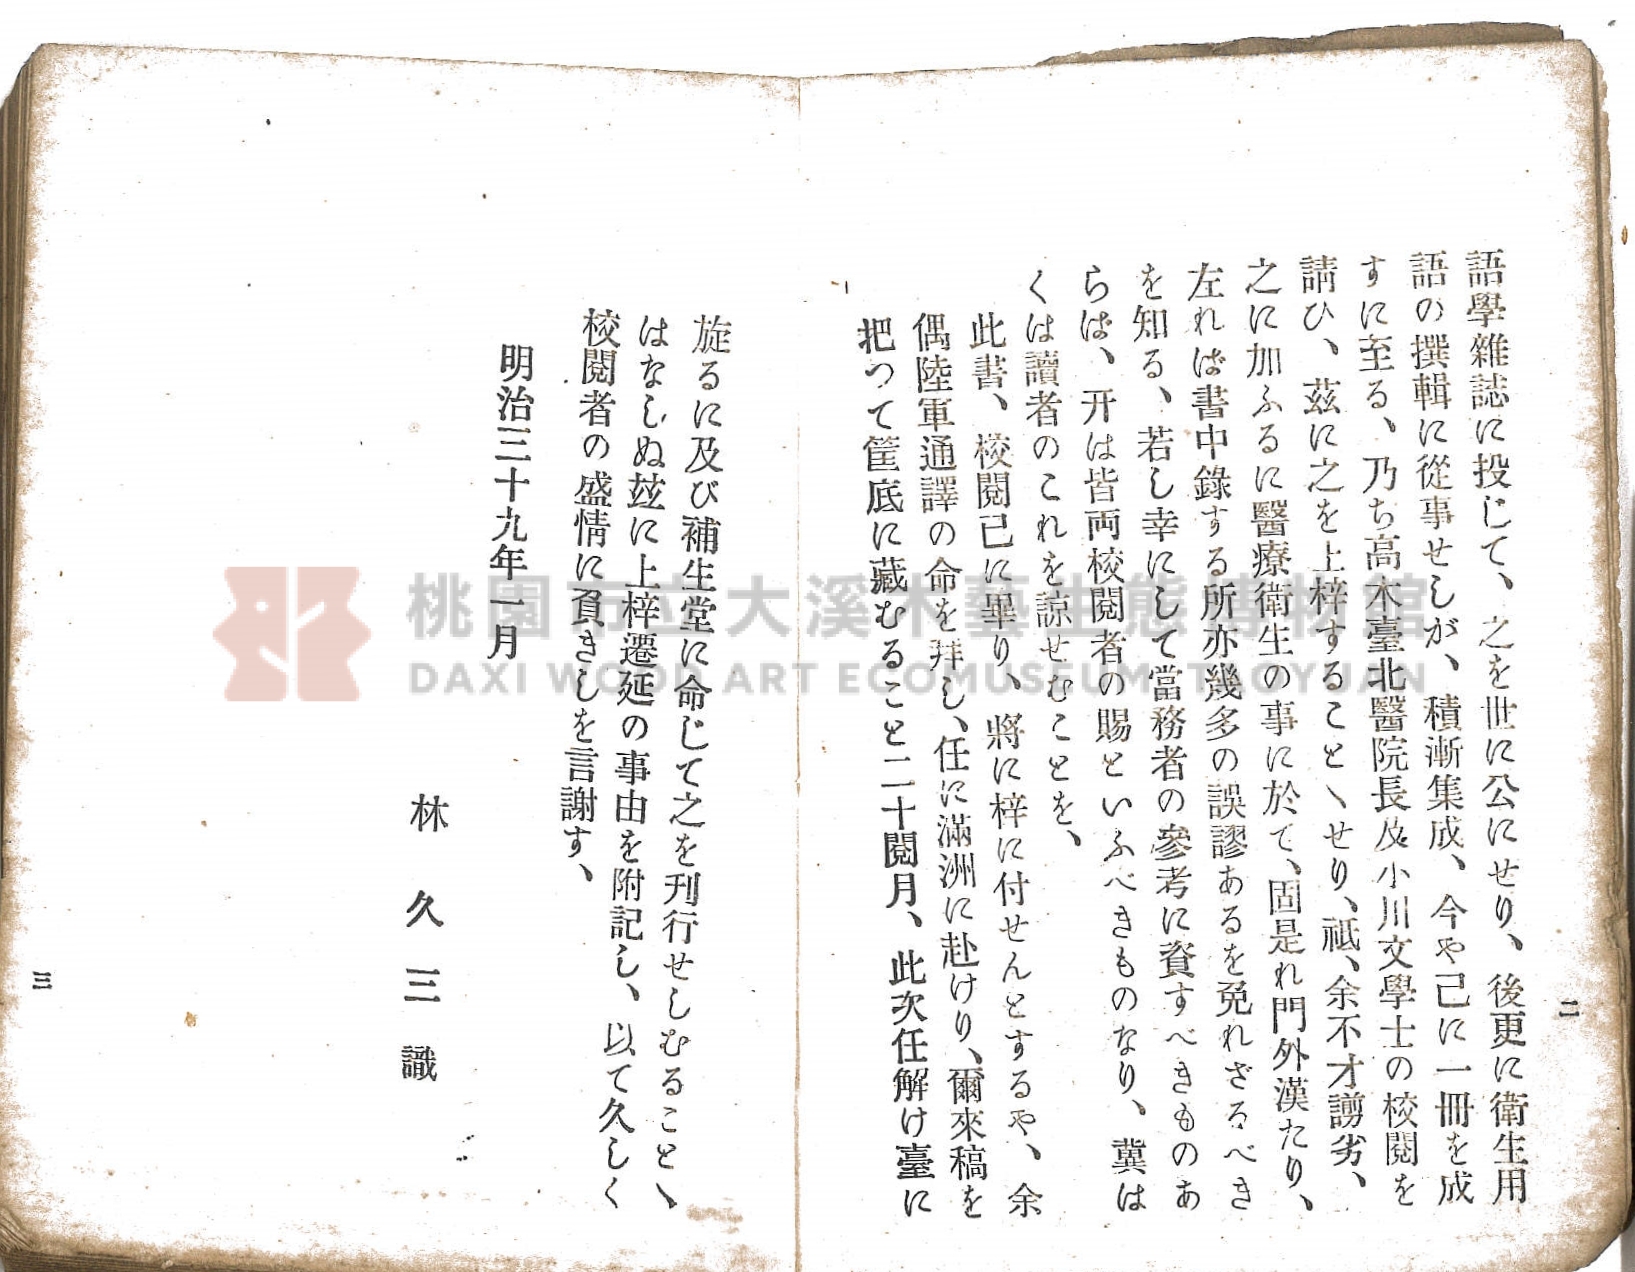 語學雜誌に投じて、之を世に公にせり、後更に衛生用
語の撰輯に從事せしが、積漸集成、今や己に一冊を成
すに至る、乃ち高木臺北醫院長及小川文學士の校閱を
請ひ、茲に之を上梓することゝせり、祗、余不才謭劣、
之に加ふるに醫療衛生の事に於て、固是れ門外漢たり、
左れば書中錄する所亦幾多の誤謬あるを免れざるべき
を知る、若し幸にして當務者の參考に資すべきものあ
らば、开は皆両校閱者の賜といふべきものなり、冀は
くは讀者のこれを諒せむことを、
此書、校閱已に畢り、將に梓に付せんとするや、余
偶陸軍通譯の命を拜し、任に滿洲に赴けり、爾來稿を
把つて筐底に藏むること二十閱月、此次任解け臺に
旋るに及び補生堂に命じて之を刊行せしむることゝ
はなしぬ玆に上梓遷延の事由を附記し、以て久しく
校閱者の盛情に負きしを言謝す、
明治三十九年一月
林久三識
二
三
桃園市立大溪木藝生態博物館
DAXI WOOD ART ECOMUSEUM, TAOYUAN